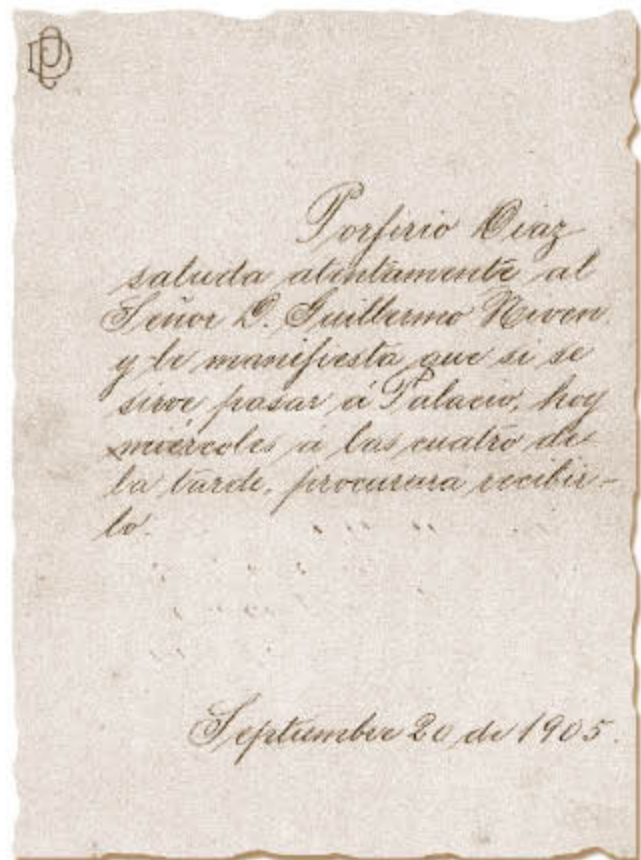 PD
Porfirio Diaz
saluda atentamente al
Señor D. Guillermo Niven
y le manifiesta que si se
sirve pasar á Palacio, hoy
miércoles á las cuatro de
la tarde, procurara recibir-
lo.
Septiembre 20 de 1905.